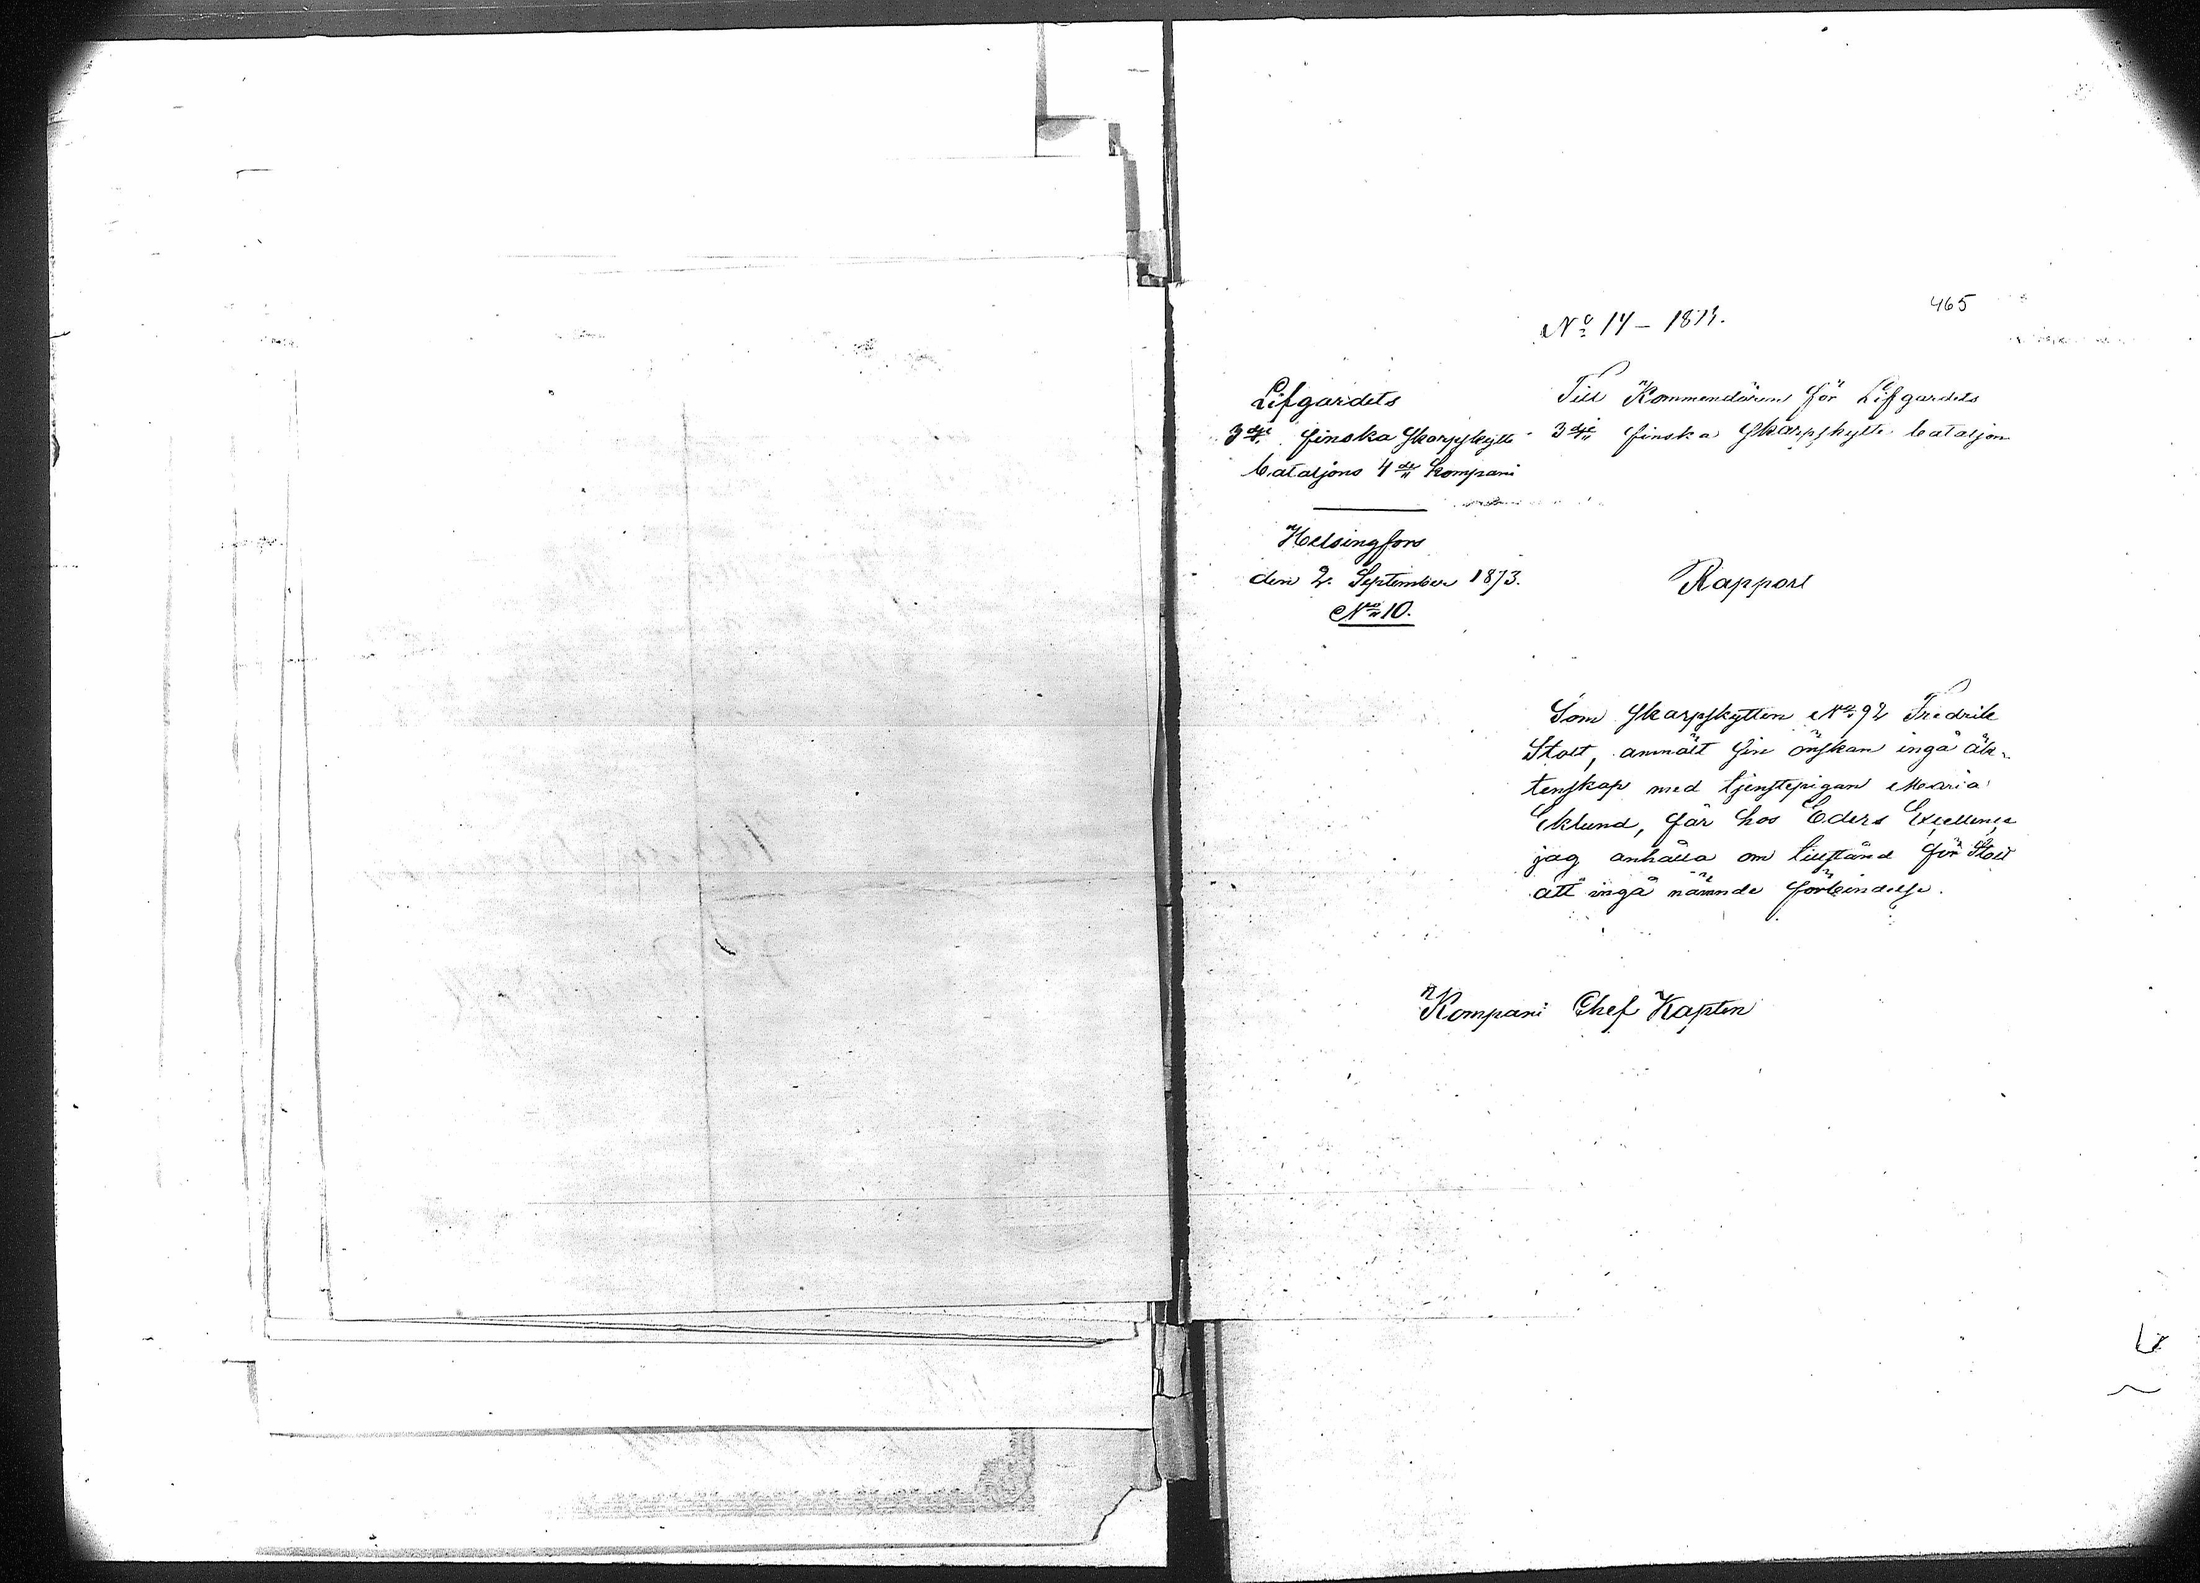 465
No 14 – 1873.
Lifgardets
3dje finska Skarpskytte
bataljons 4de Kompani
Helsingfors
den 2. September 1873.
No 10.
Till Kommendören för Lifgardets
3dje finska Skarpskytte bataljon
Rapport
Som Skarpskytten No 92 Fredrik
Stolt, anmält sin önskan ingå äk-
tenskap med tjenstepigan Maria
Eklund, får hos Eders Excellence
jag anhålla om tillstånd för Stolt
att ingå nämnde förbindelse.
Kompani Chef Kapten